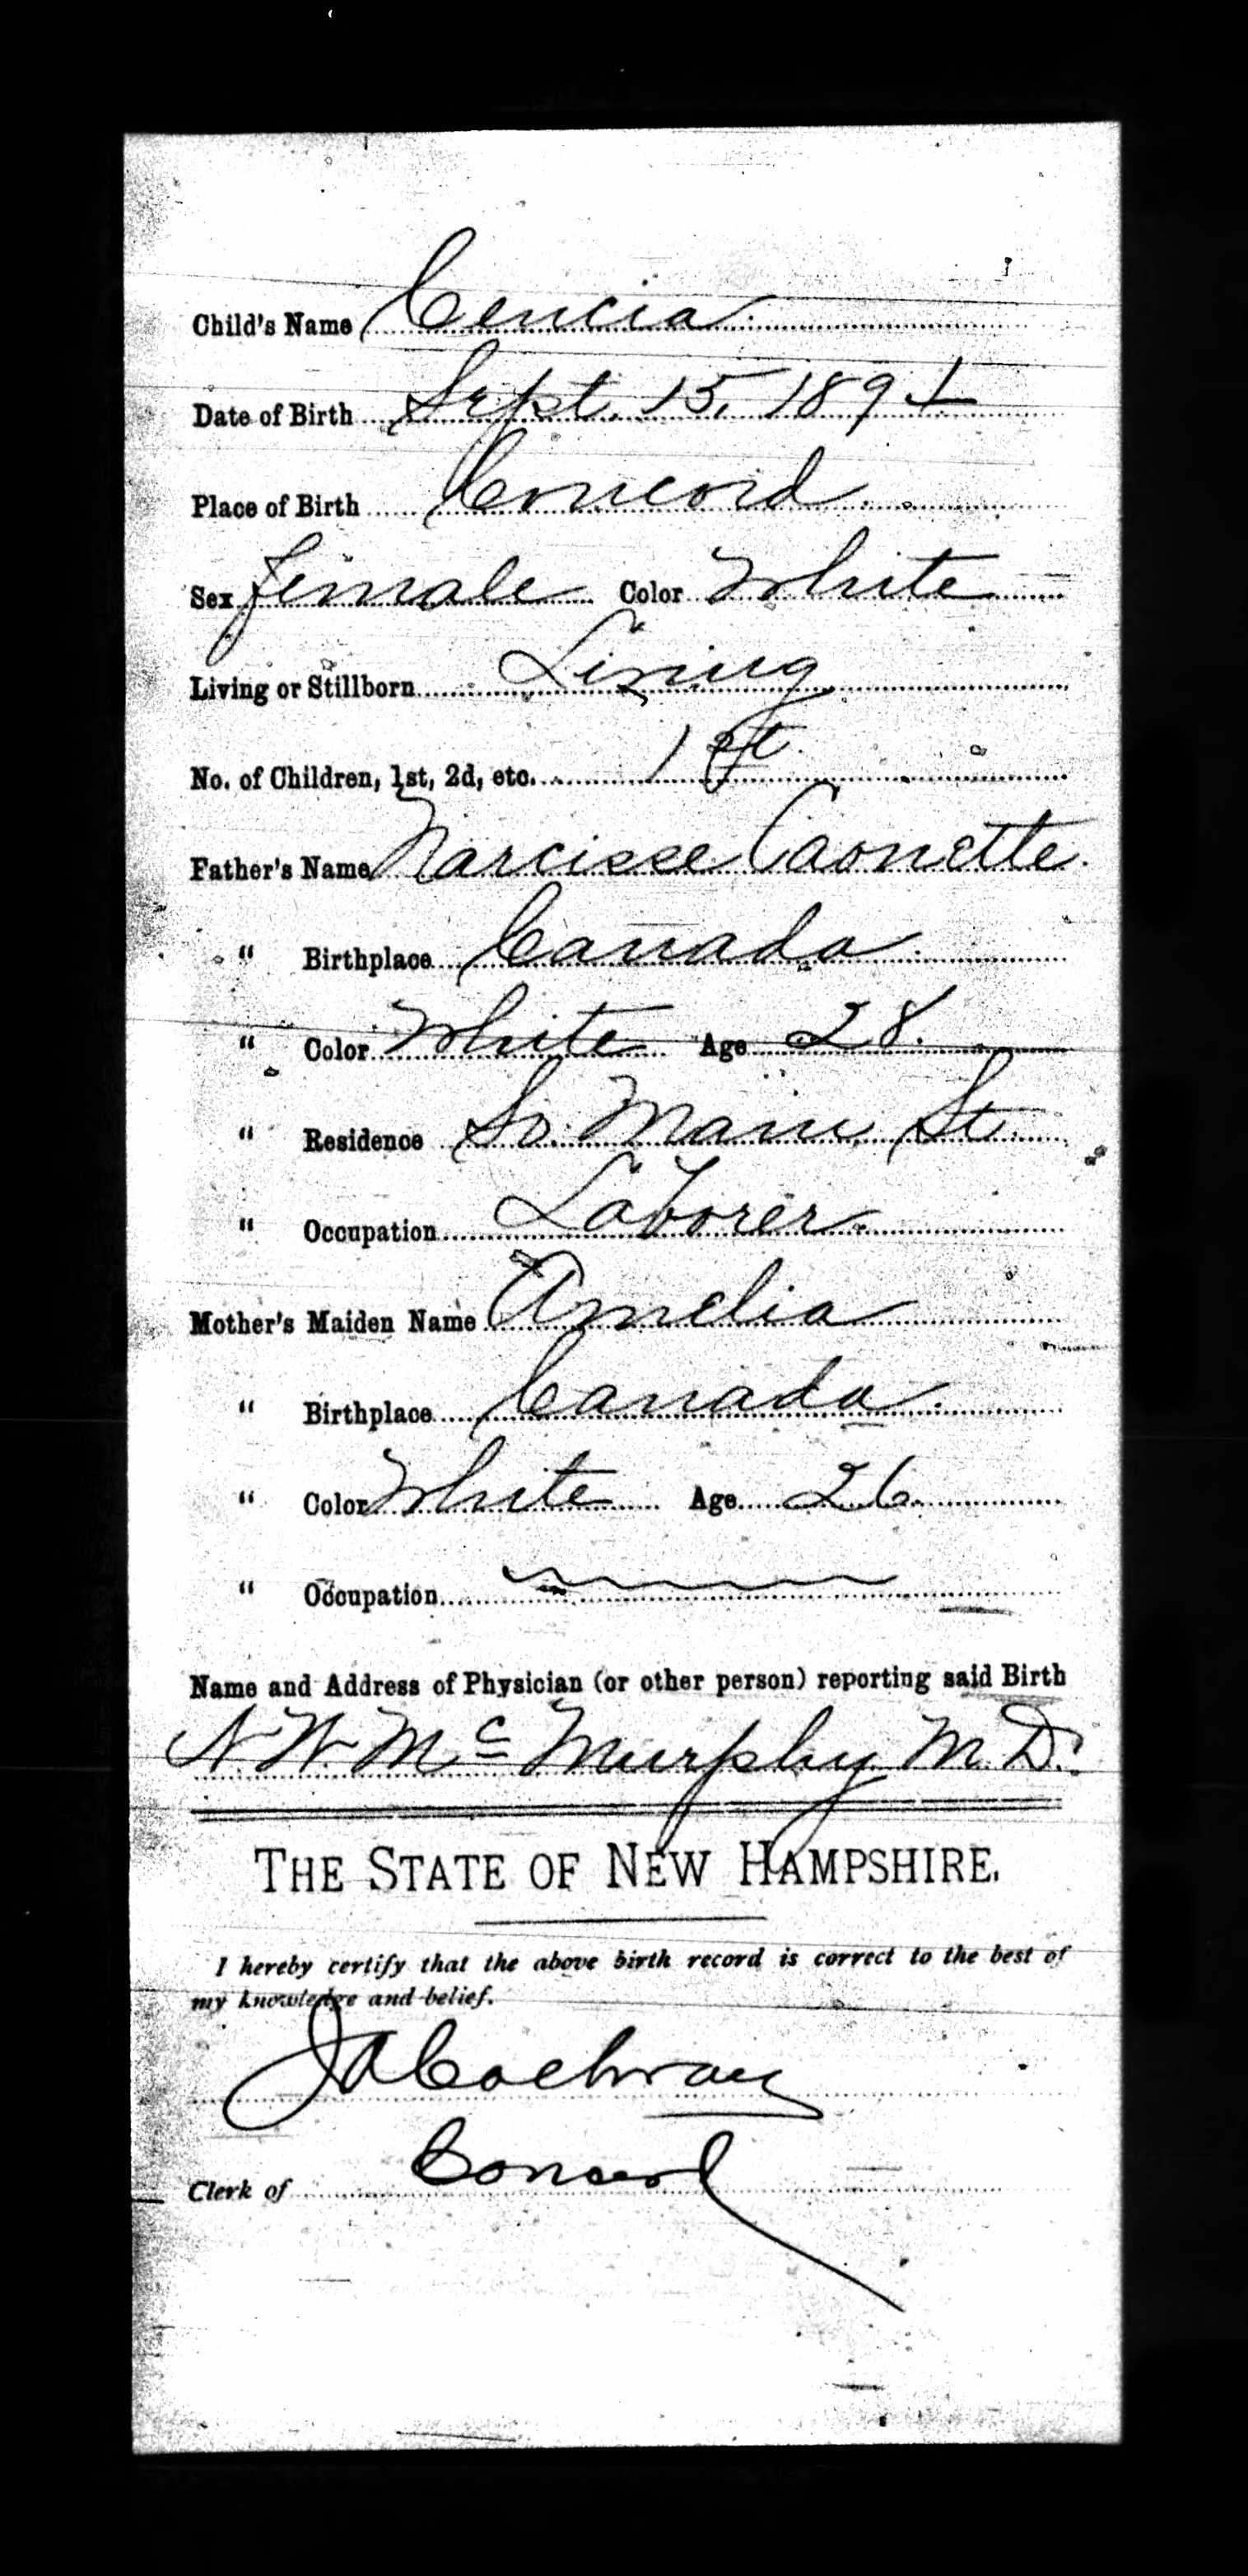 Child's Name Cencia
Date of Birth Sept. 15, 1894
Place of Birth Concord
Sex female Color White
Living or Stillborn Living
No. of Children, 1st, 2d, etc. 1st
Father's Name Narcisse Caonette.
" Birthplace Canada
" Color White Age 28.
" Residence So. Main St.
" Occupation Laborer.
Mother's Maiden Name Amelia
" Birthplace Canada.
" Color White Age 26
" Occupation
Name and Address of Physician (or other person) reporting said Birth
N. W. Mc Murphy M. D.
THE STATE OF NEW HAMPSHIRE.
I hereby certify that the above birth record is correct to the best of
my knowledge and belief.
J A Cochran
Clerk of Concord